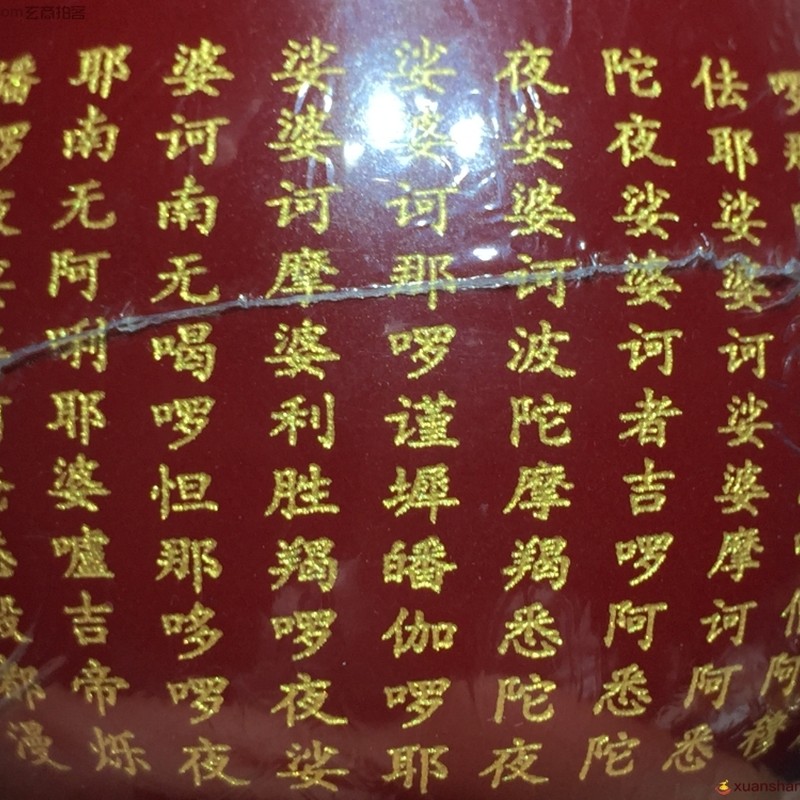 佉耶娑婆诃娑婆摩诃阿悉
陀夜娑婆诃者吉啰阿悉陀
夜娑婆诃波陀摩羯悉陀夜
娑婆诃那啰谨墀皤伽啰耶
娑婆诃摩婆利胜羯啰夜娑
婆诃南无喝啰怛那哆啰夜
耶南无阿唎耶婆嚧吉帝烁
漫
om玄商拍客
xuanshan